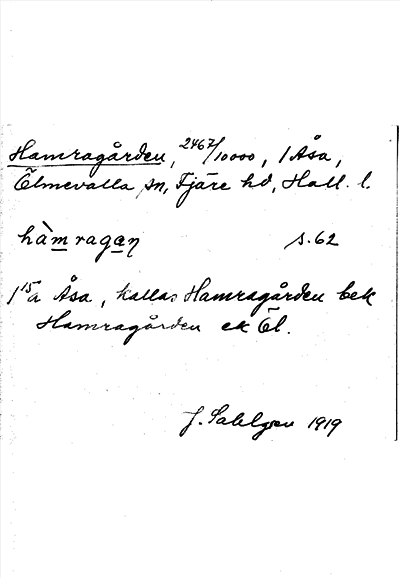 Hamragården, 2467/10000, 1 Åsa,
Ölmevalla sn, Fjäre hd, Hall. l.
hàmragaṇ s. 62
1 15a Åsa, kallas Hamragården bek
Hamragården ek Öl.
J. Sahlgren 1919